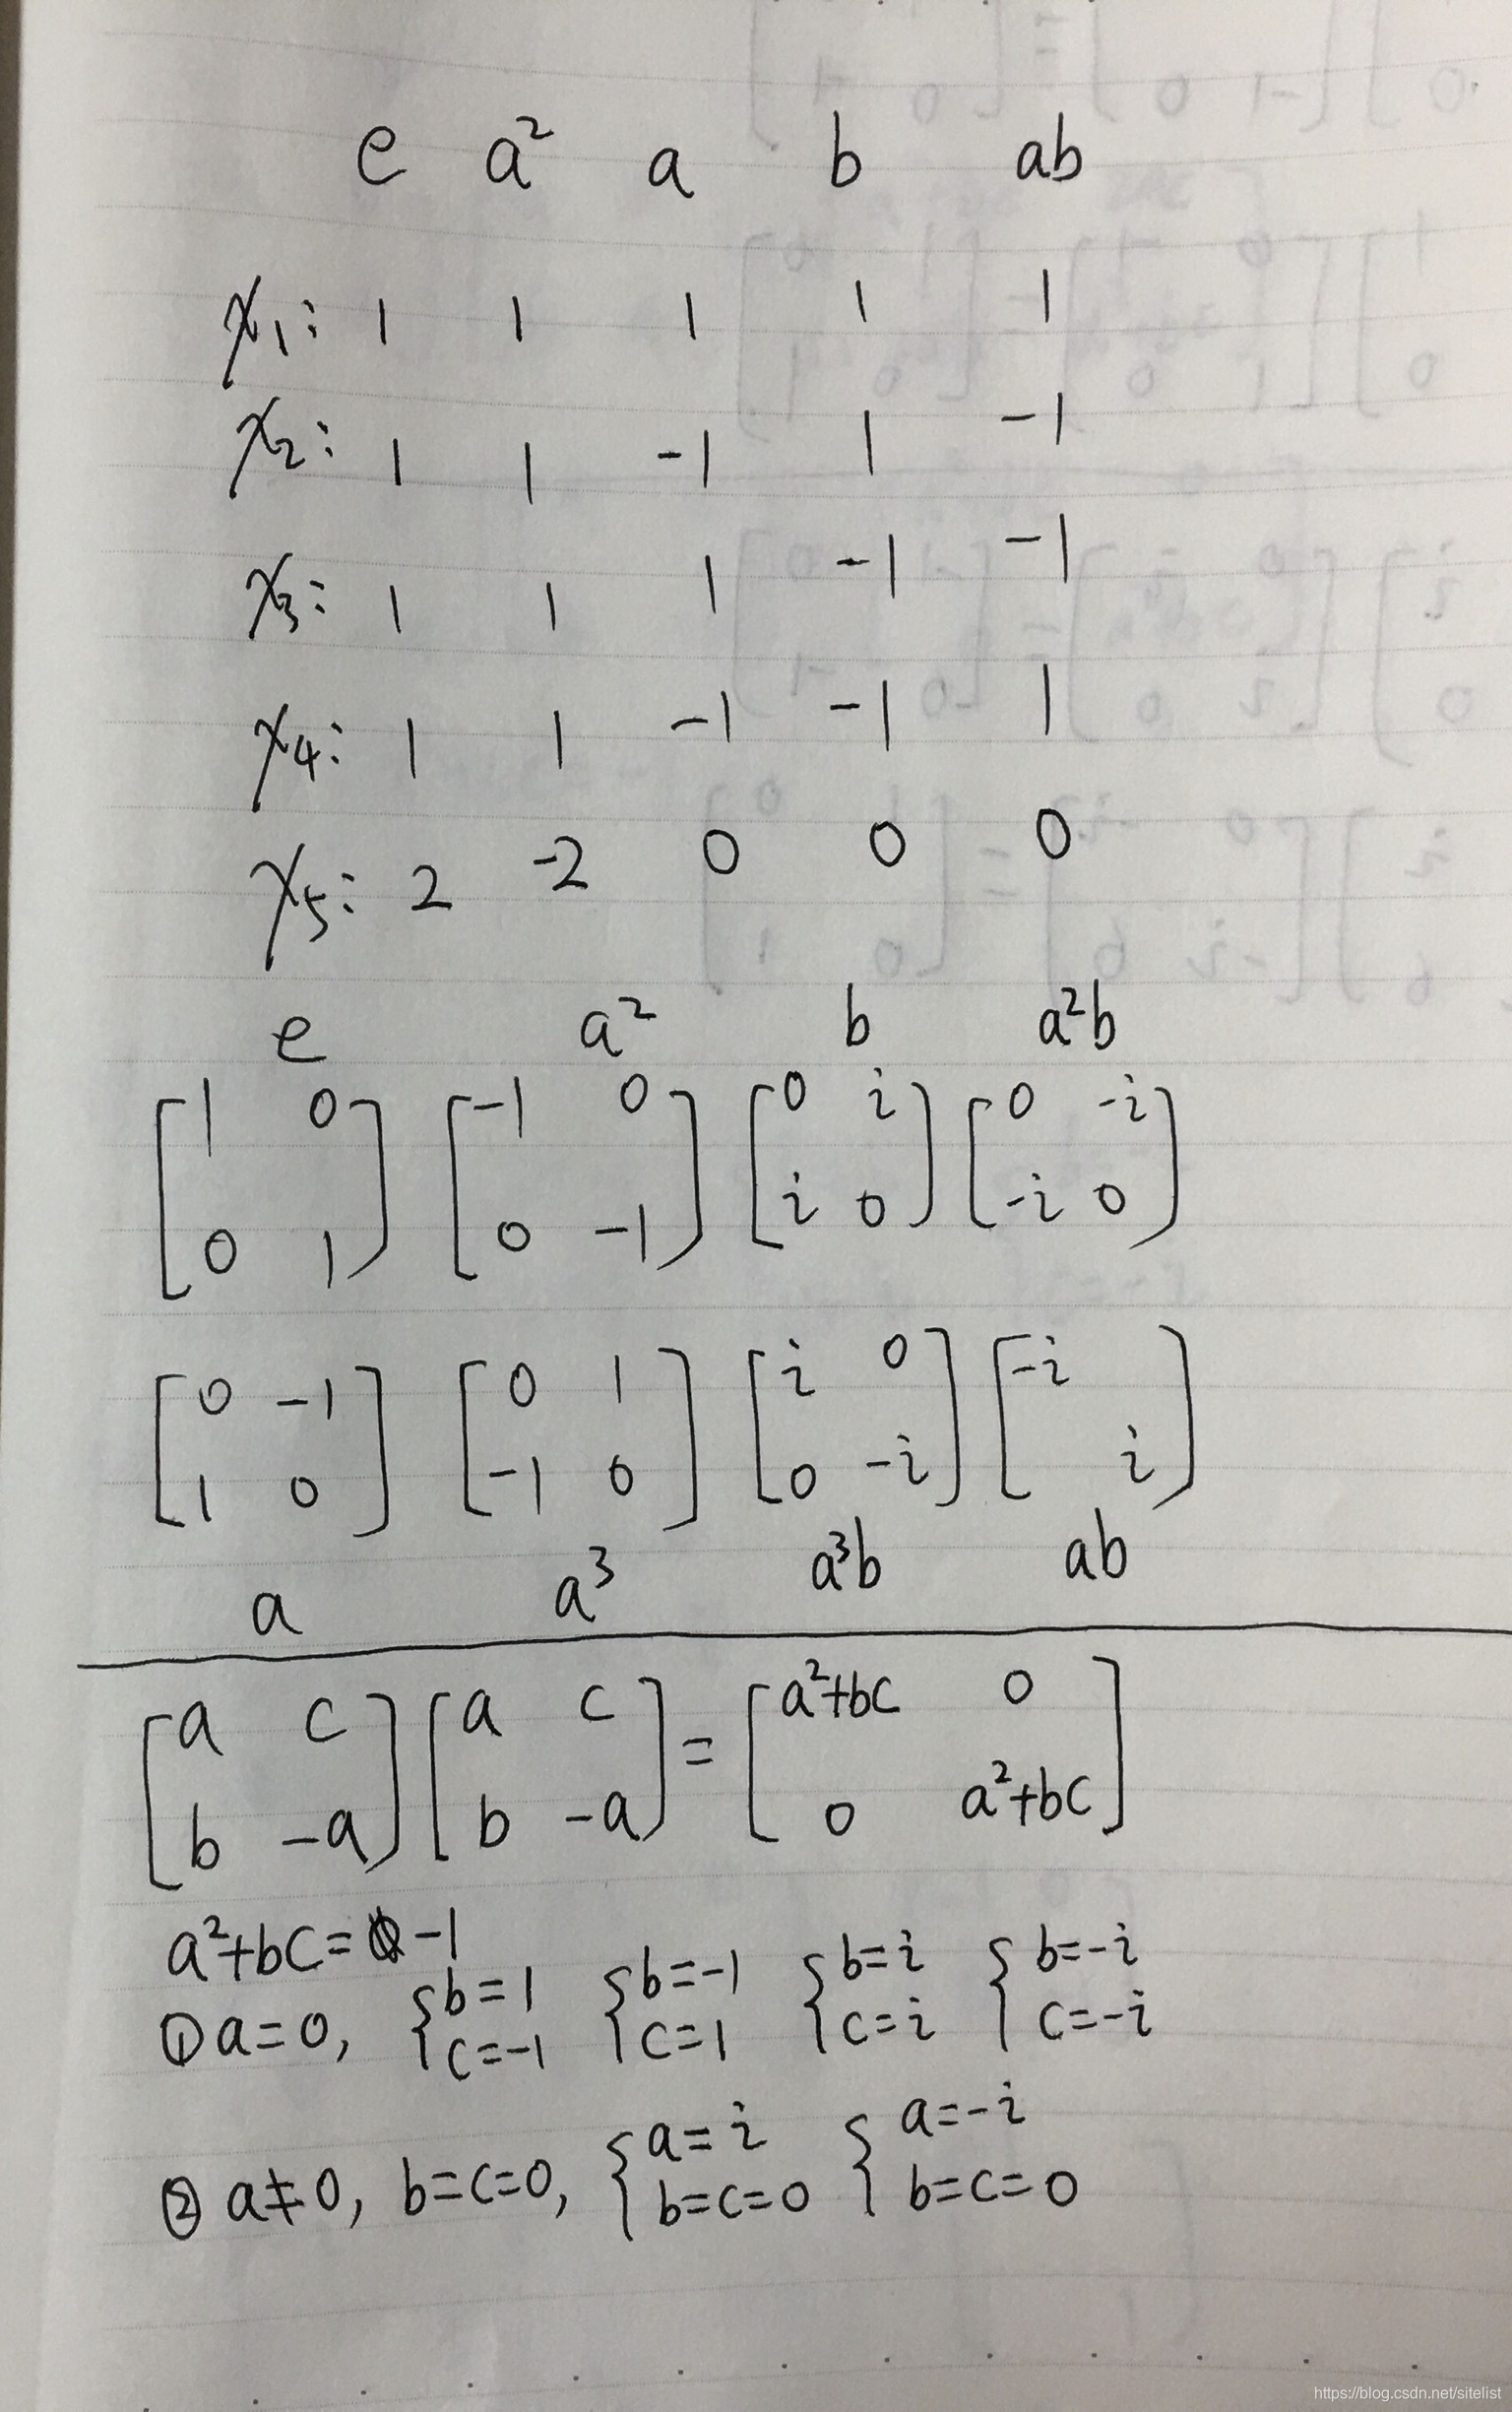 e a² a b ab
χ₁: 1 1 1 1 1
χ₂: 1 1 -1 1 -1
χ₃: 1 1 1 -1 -1
χ₄: 1 1 -1 -1 1
χ₅: 2 -2 0 0 0
e a² b a²b
[1 0 [-1 0 [0 i [0 -i
0 1] 0 -1] i 0] -i 0]
[0 -1 [0 1 [i 0 [-i
1 0] -1 0] 0 -i] i]
a a³ a³b ab
[a c [a c = [a²+bc 0
b -a] b -a] 0 a²+bc]
a²+bc= -1
① a=0, {b=1 {b=-1 {b=i {b=-i
c=-1 c=1 c=i c=-i
② a≠0, b=c=0, {a=i {a=-i
b=c=0 b=c=0
https://blog.csdn.net/sitelist